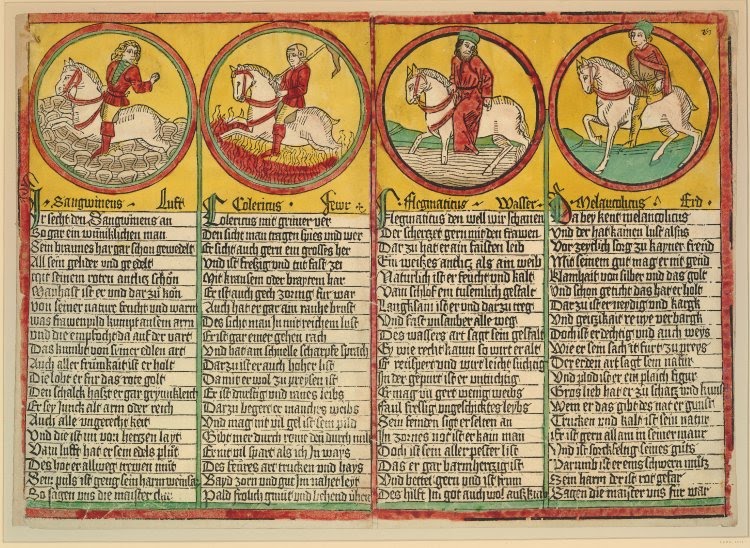 Sangwineus Lufft
Ir secht den Sangwineus an
So gar ein minniklichen man
Sein braunes har gar schon
All sein gelider und
mit seinem roten antlitz schön
warhafft ist er und dar zu kön
Von seiner natur feucht und warm
was frawen und kumpt an sein arm
und die empfecht da auf der vart
Das kumbt von seiner edlen art
Auch aller frümkait ist er holt
Die lobt er für das rote golt
Den schalck hasst er gar
Er sey Junck alt arm oder reich
Auch alle ungerechtikeit
Und die ist im von hertzen layt
Vom lufft hat er sein edels plut
Des hot er allweg treuen mut
Sein puls ist greng sein harm weinfar
So sagen uns die maister clar
Colericus Fewr
Colericus mit grimer ver
Den sicht man tragen spies und wer
Er ficht auch gern ein grosses her
Und ist fressig und nit fast
Mit krausem oder braytem har
Er ist auch gech zornig für war
Auch hat er gar am rauhe brust
Des sicht man In mit reichem lust
Er ist gar einer gehen rach
Und hat am schnelle scharpffe sprach
Dar zu ist er auch hoher list
Da mit er wol zu preysen ist
Er ist dürstig und raues leibs
Dar zu begert er manches weibs
Und mag nit vil gel ist sein pild
Gibt mer durch rume den durch milt
Er nit vil spart als ich In ways
Des feures art trucken und hays
Bayd zorn und gut Im naher leyt
Pald frolich gmut und
Flegmaticus Wasser
Flegmaticus den well wir schauen
Der schertzet gern mit den frawen
Dar zu hat er ain faisten leib
Ein weisses antlitz als ain weib
Naturlich ist er feucht und kalt
Vom schlof ein tusemlich gestalt
Langksam ist er und dar zu treg
Und fast unsauber alle weg
Des wassers art sagt sein gestalt
Ey wie recht kaum so wirt er alt
Er reispert und wirt leicht süchtig
In der gepurt ist er untüchtig
Er mag und gert wenig weibs
Faul fressig ungeschicktes leybs
Sein feinden sigt er selten an
In zornes not ist er kain man
Doch ist sein aller pester list
Das er gar barmhertzig ist
Und bettet gern und ist frum
Des hilft Im got auch wol
Melancolicus Erd
Da bey kent melancolicus
Und der hat kainen lust alsus
Vor zeytlich sorg zu kayner freud
Mit seinem gut mag er nit geud
Klarhait von silber und das golt
Und schon geticht das har er holt
Dar zu ist er neydig und kargk
Und geitzikait er nye verbargk
Doch ist er dechtig und auch weys
Wie er sein sach it furt zu preys
Der erden art sagt sein natur
Und plod ist er ein plaich figur
Gros lieb hat er zu schatz und kunst
Wem er das gibt des nat er gunst
Trucken und kalt ist sein natur
Er ist gern allain in seiner maur
Und ist sorckfeltig seines guts
Darumb ist er eins schwern mutz
Sein harm der ist rot gefar
Sagen die maister uns für war